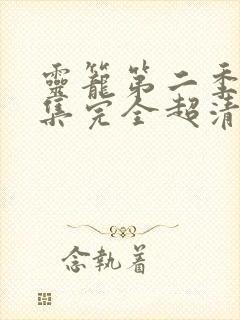 靈籠第二季
集完全超清
念執着